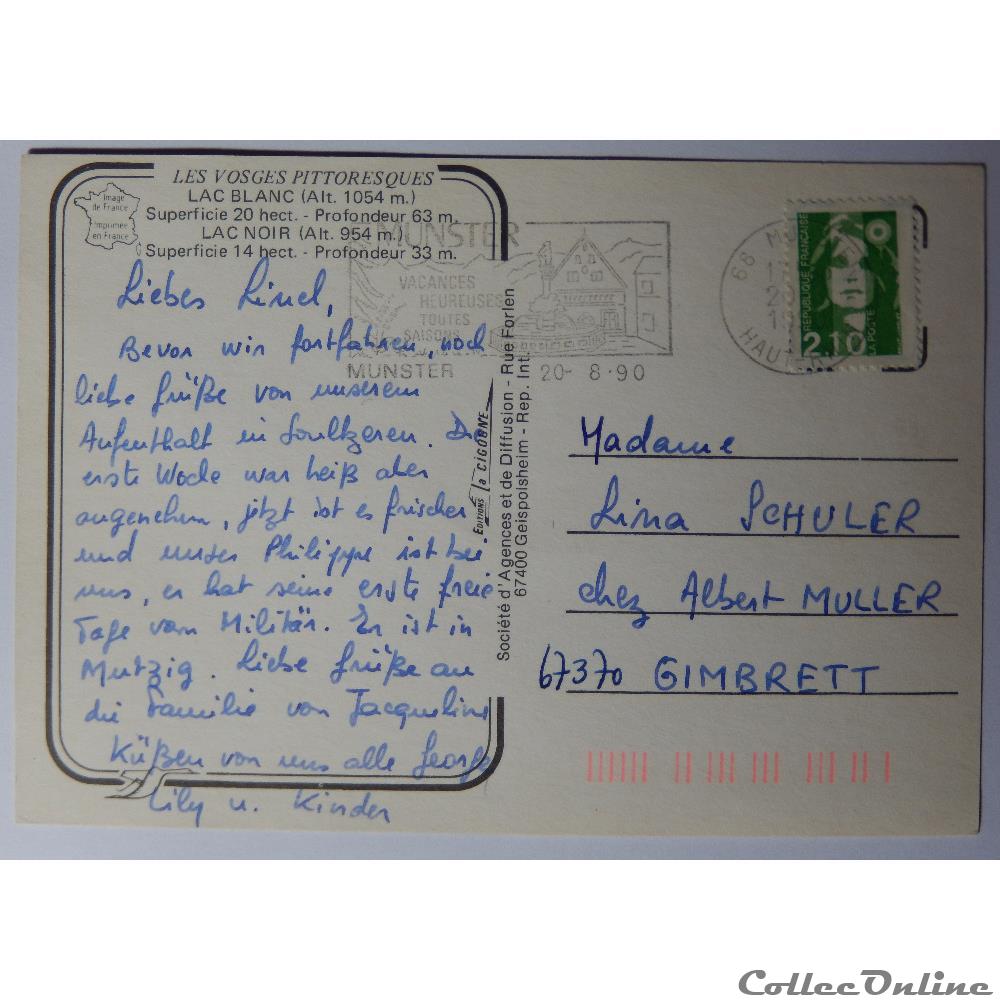 LES VOSGES PITTORESQUES
LAC BLANC (Alt. 1054 m.)
Superficie 20 hect. - Profondeur 63 m.
LAC NOIR (Alt. 954 m.)
Superficie 14 hect. - Profondeur 33 m.
Image
de France
Imprimée
en France
Liebes Linel,
Bevor wir fortfahren, noch
liebe Grüße von unserem
Aufenthalt in Soultzeren. Die
erste Woche war heiß aber
angenehm, jetzt ist es frischer
und unser Philippe ist bei
uns, er hat seine erste freie
Tage vom Militär. Er ist in
Mutzig. Liebe Grüße an
die Familie von Jacqueline
Küßen von uns alle George
Lily u. Kinder
MUNSTER
VACANCES
HEUREUSES
TOUTES
SAISONS
MUNSTER
20- 8-90
EDITIONS la CIGOGNE
Société d'Agences et de Diffusion - Rue Forlen
67400 Geispolsheim - Rep. Int.
68
HAUT
REPUBLIQUE FRANÇAISE
2,10
LA POSTE
Madame
Lina SCHULER
chez Albert MULLER
67370 GIMBRETT
CollecOnline